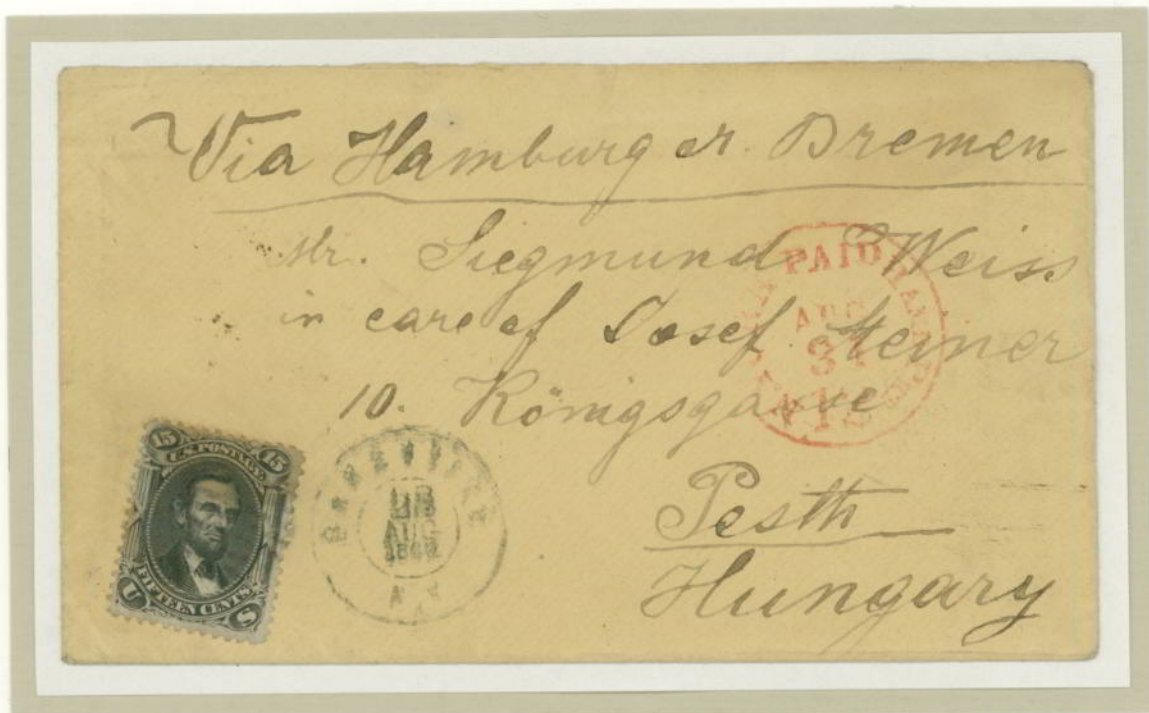 Via Hamburg or Bremen
Mr. Siegmund Weiss
in care of Josef Steiner
10. Königsgasse
Pesth
Hungary
PAID
AUG
12
15 15
U.S. POSTAGE
FIFTEEN CENTS
U S
28
AUG
N.Y.